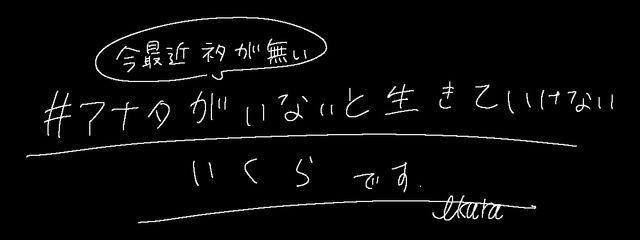 今最近ネタが無い
#アナタがいないと生きていけない
いくらです.
ikura